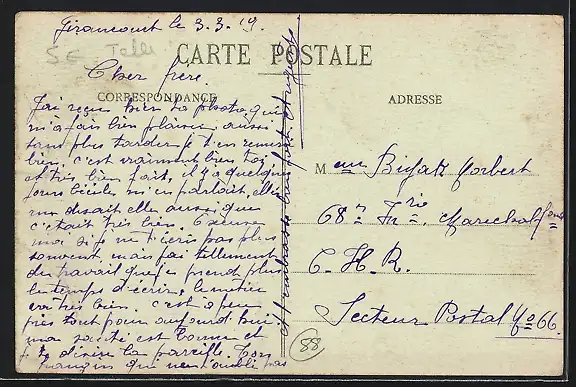 Girancourt le 3.3.19.
5 € Telle
CARTE POSTALE
Cher frère
CORRESPONDANCE
ADRESSE
J'ai reçu bien ta photo qui
m'a fais bien plaisir, aussi
sans plus tarder je t'en remercie
bien. c'est vraiment bien toi
et très bien fait, il y a quelques
jours Cécile m'en parlait, elle
me disait elle aussi que
c'était très bien. Excuse
moi si je ne t'écris pas plus
souvent, mais j'ai tellement
du travail que je prend plus
le temps d'écrire, le métier
va très bien. c'est à peu
près tout pour aujourd'hui.
ma santé est bonne et
je te désire la pareille. Ton
frangin qui ne t'oublie pas
et t'embrasse bien fort
M
68e
Marechal
C. H. R.
Secteur Postal No 66.
88